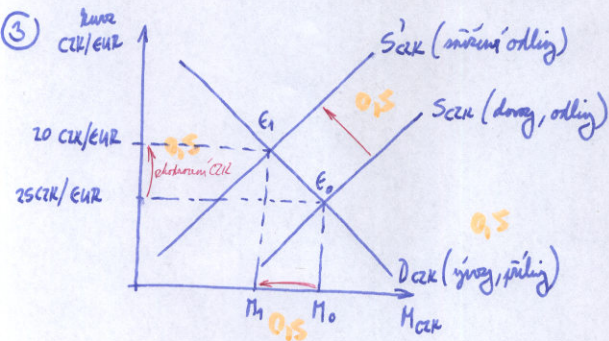 3
kurz
CZK/EUR
S'CZK (snížení odliv)
0,5
SCZK (dovoz, odliv)
E1
20 CZK/EUR
0,5
zhodnocení CZK
E0
25 CZK/EUR
0,5
DCZK (vývoz, příliv)
M1
M0
MCZK
0,5